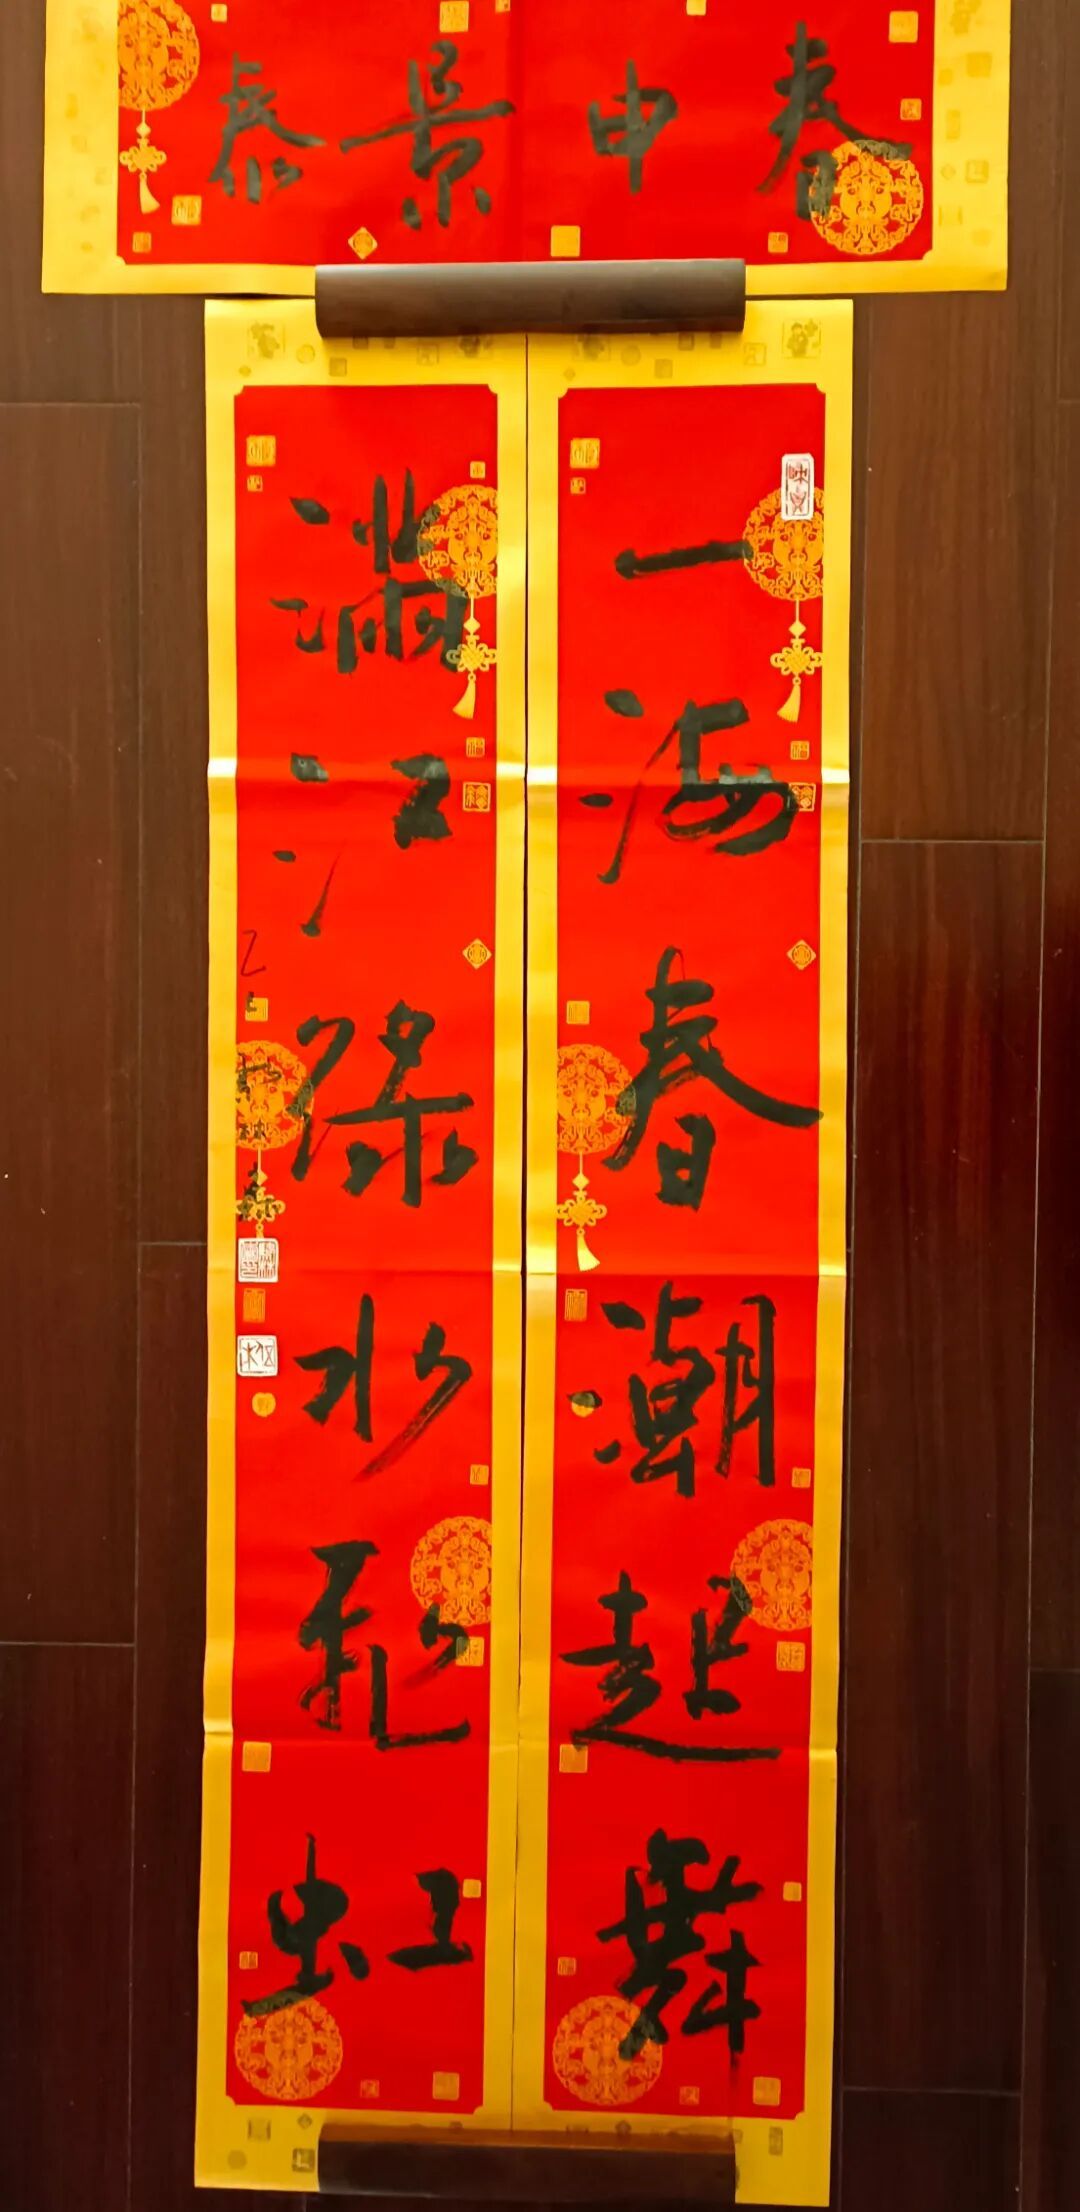 春申景泰
一海春潮起舞
满江绿水飛虹
乙巳